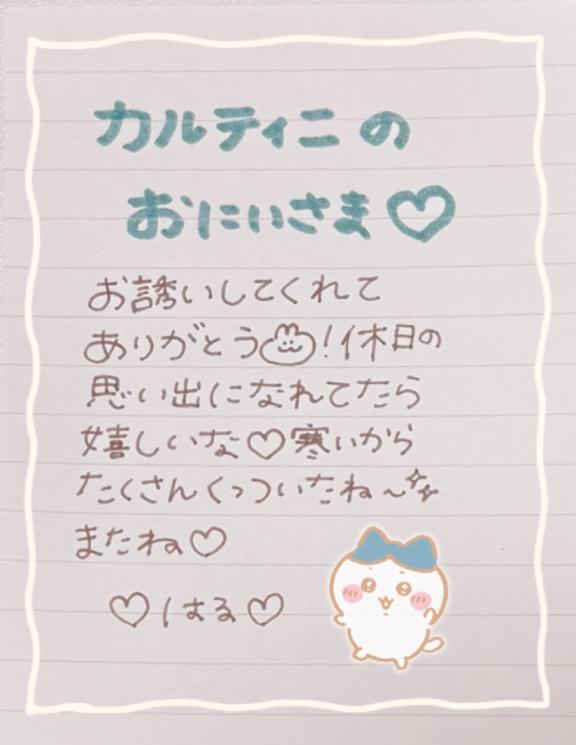 カルティニの
おにいさま♡
お誘いしてくれて
ありがとう!休日の
思い出になれてたら
嬉しいな♡寒いから
たくさんくっついたね〜✨
またね♡
♡はる♡